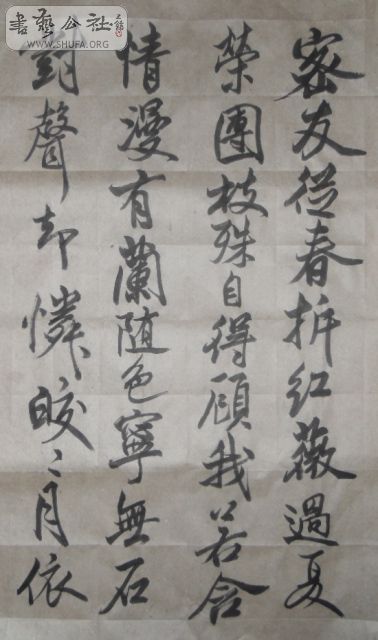 書藝公社
WWW.SHUFA.ORG
密友從春拆紅薇過夏
榮團枝殊自得顧我若含
情漫有蘭随色寧無石
對聲却憐皎々月依